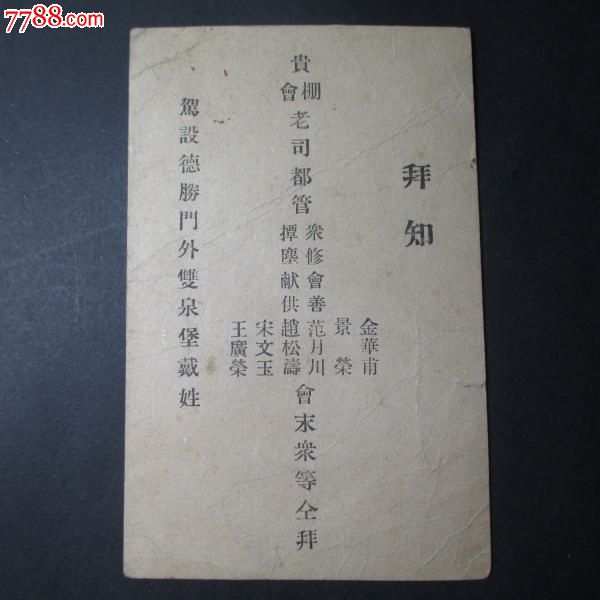 7788.com
拜知
貴棚會老司都管
衆修會善
撢塵献供
金華甫
景榮
范月川
趙松濤
宋文玉
王廣榮
會末衆等仝拜
駕設德勝門外雙泉堡戴姓